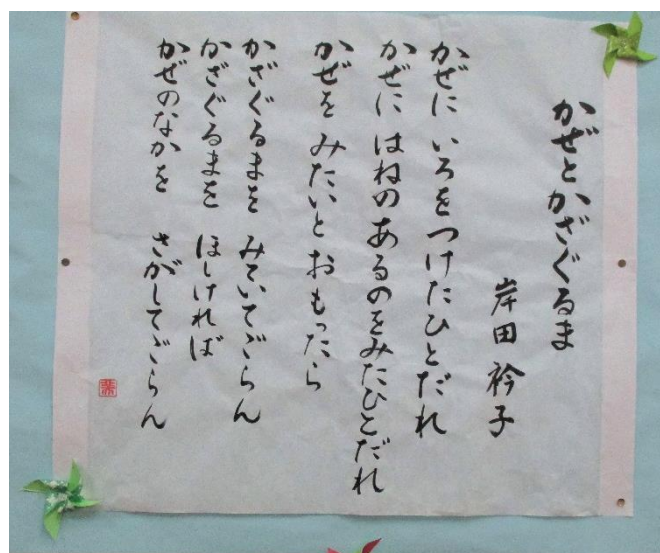 かぜとかざぐるま
岸田 衿子
かぜに いろをつけたひとだれ
かぜに はねのあるのをみたひとだれ
かぜを みたいと おもったら
かざぐるまを みていてごらん
かざぐるまを ほしければ
かぜのなかを さがしてごらん